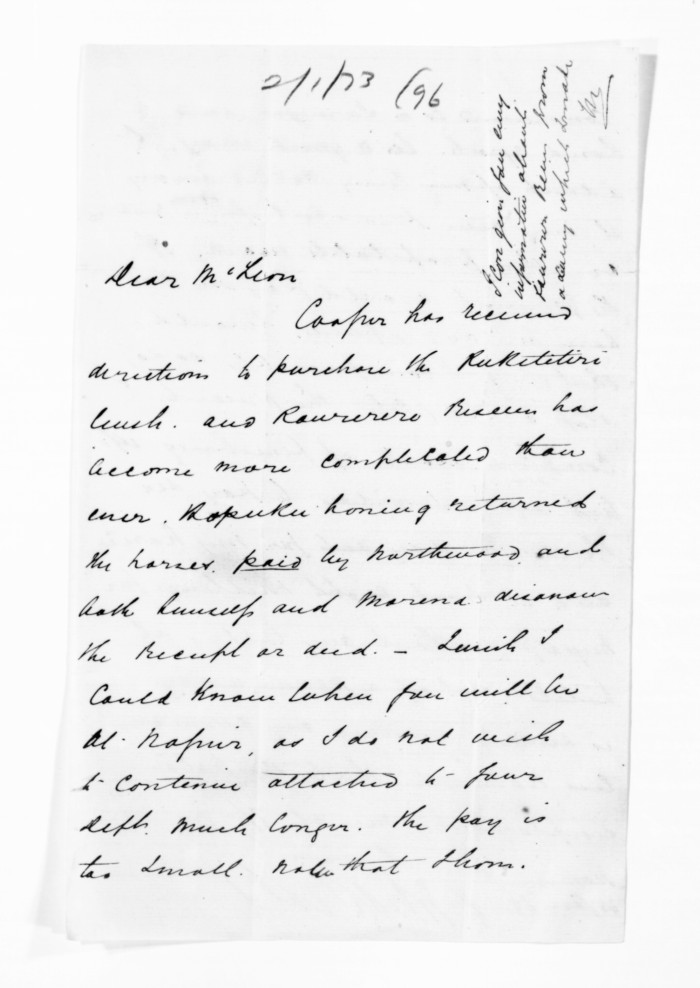 2/1/73 /96
I can give you any
information about
from
a survey which I made
Dear McLean
Cooper has received
directions to purchase the Ruketetiri
bush. and Raurerero Reserve has
become more complicated than
ever. Hapuku having returned
the horses paid by Northwood and
both himself and Morena disavow
the Receipt or deed. - I wish I
Could Know when you will be
At Napier, as I do not wish
to Continue attached to your
Deptt. much longer. the pay is
too Small. Now that Thom.